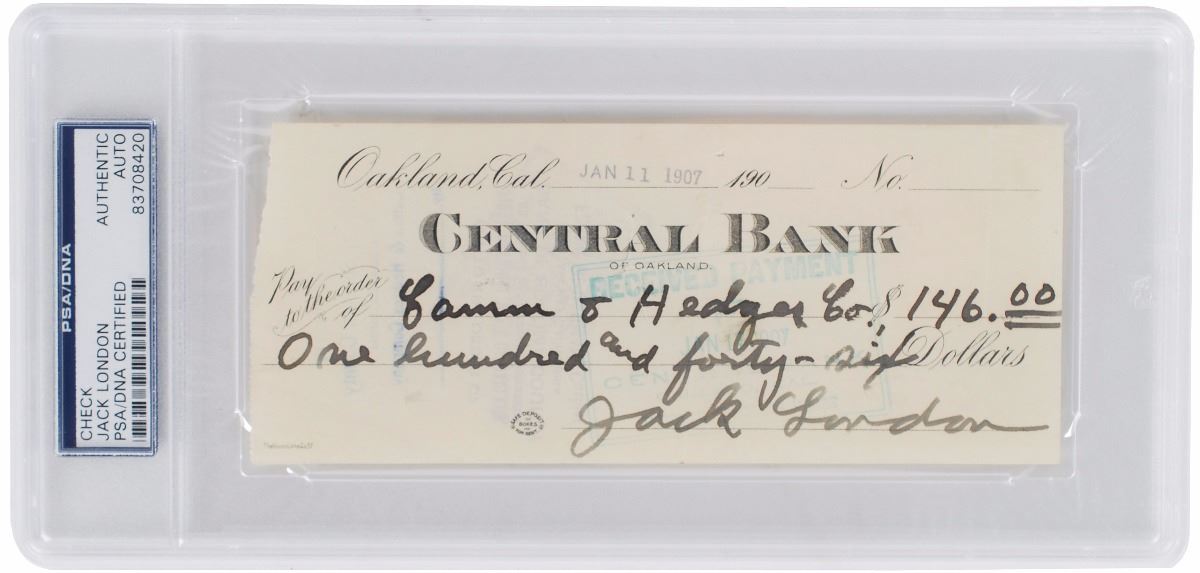 PSA/DNA
CHECK AUTHENTIC
JACK LONDON AUTO
PSA/DNA CERTIFIED 83708420
Oakland, Cal. JAN 11 1907 190 No.
CENTRAL BANK
OF OAKLAND.
RECEIVED PAYMENT
Pay to the order of Camm & Hedges Co., $ 146.00
One hundred and forty-six Dollars
SAFE DEPOSIT BOXES FOR RENT
Jack London